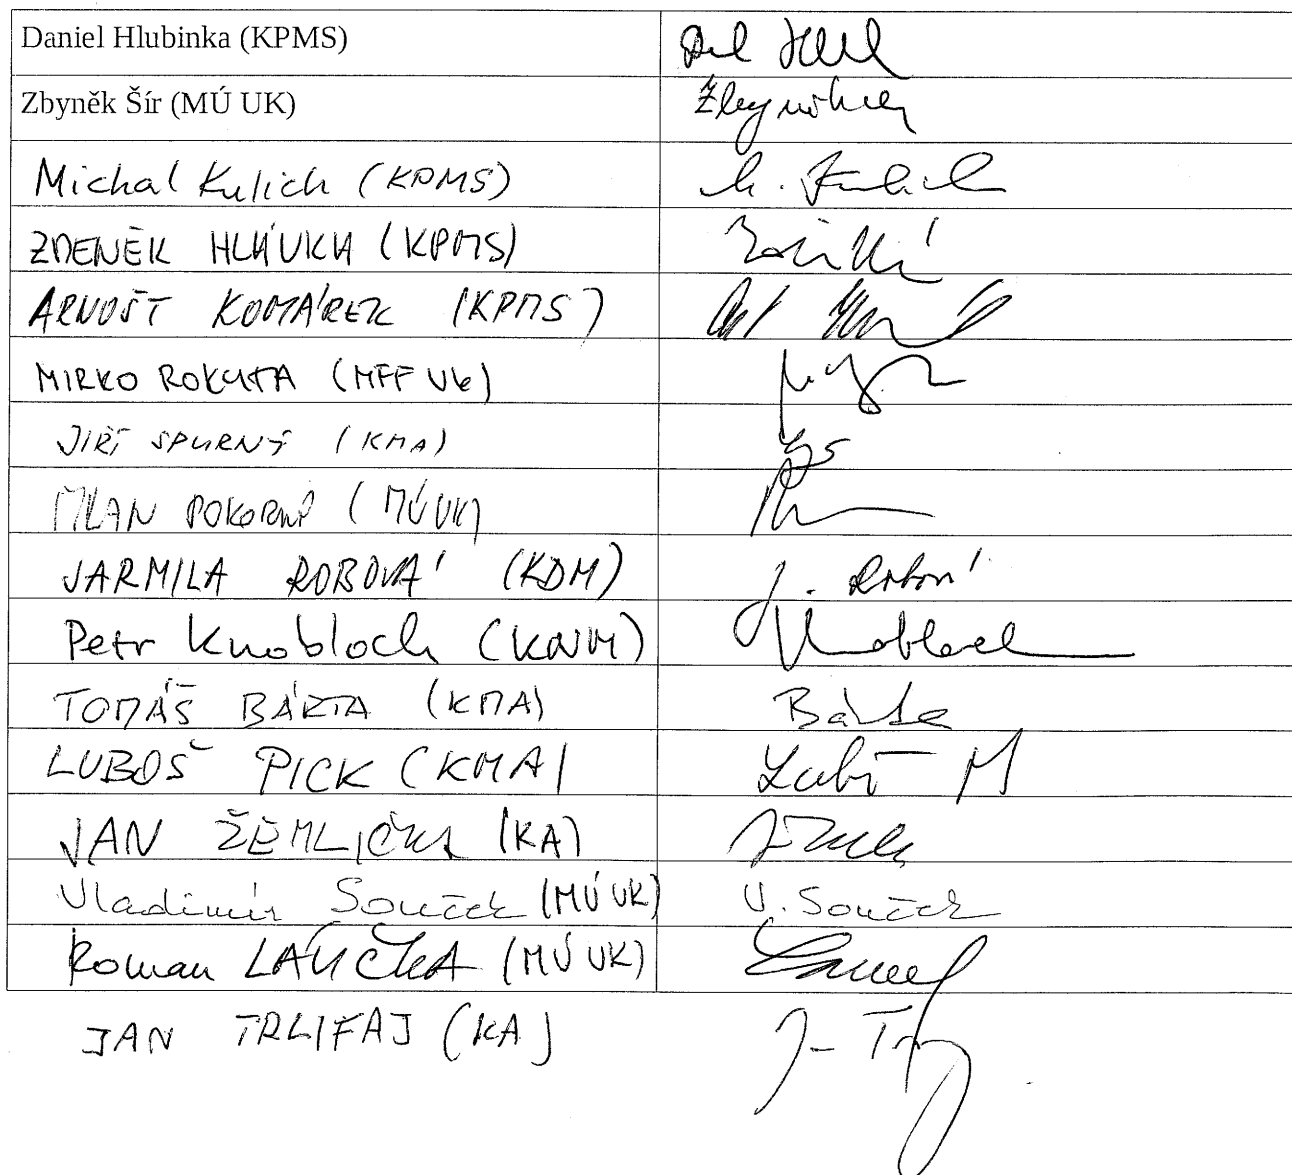 Daniel Hlubinka (KPMS)
Zbyněk Šír (MÚ UK)
Michal Kulich (KPMS) M. Kulich
ZDENĚK HLÁVKA (KPMS)
ARNOŠT KOMÁREK (KPMS)
MIRKO ROKYTA (MFF UK)
JIŘÍ SPURNÝ (KMA)
MILAN POKORNÝ (MÚ UK)
JARMILA ROBOVÁ (KDM) J. Robová
Petr Knobloch (KNM) Knobloch
TOMÁŠ BÁRTA (KMA) Bárta
LUBOŠ PICK (KMA)
JAN ŽEMLIČKA (KA)
Vladimír Souček (MÚ UK) V. Souček
Roman LÁVIČKA (MÚ UK)
JAN TRLIFAJ (KA)